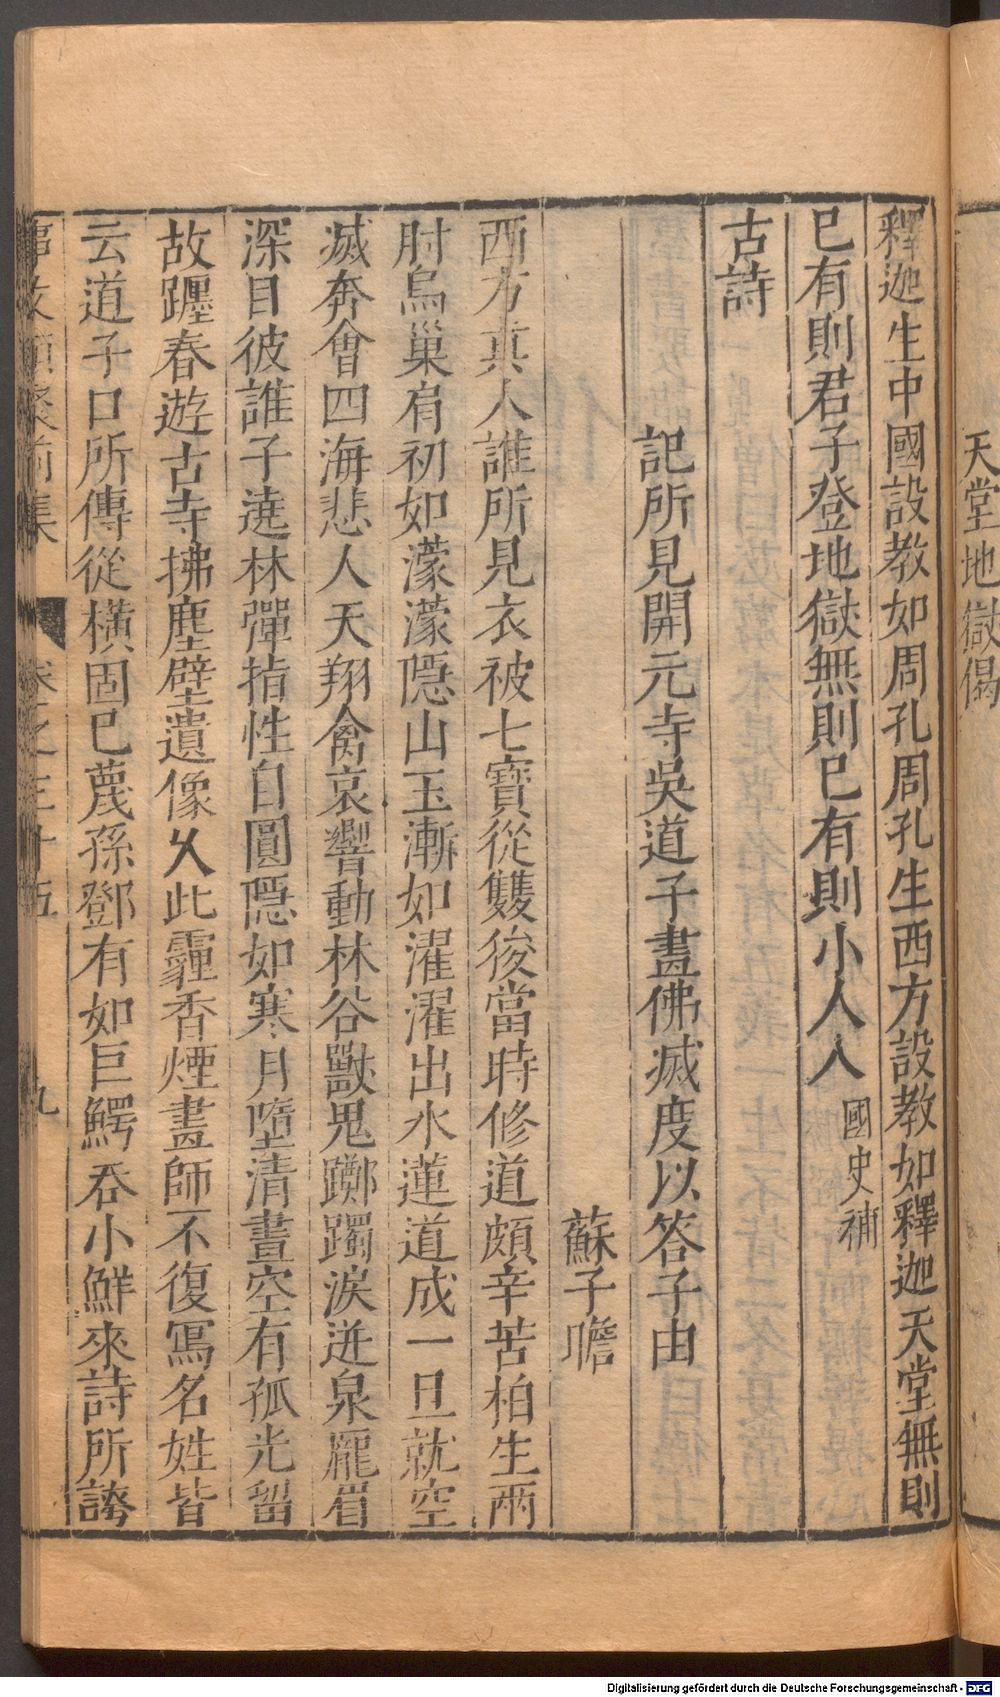 天堂地獄偈
釋迦生中國設教如周孔周孔生西方設教如釋迦天堂無則
已有則君子登地獄無則已有則小人入國史補
古詩
記所見開元寺吳道子畫佛滅度以答子由
蘇子瞻
西方真人誰所見衣被七寶從雙狻當時修道頗辛苦柏生兩
肘烏巢肩初如濛濛隱山玉漸如濯濯出水蓮道成一旦就空
滅奔會四海悲人天翔禽哀響動林谷獸鬼躑躅淚迸泉龐眉
深目彼誰子遶林彈指性自圓隱如寒月墮清晝空有孤光留
故躔春遊古寺拂塵壁遺像久此霾香煙畫師不復冩名姓皆
云道子口所傳從橫固已蔑孫鄧有如巨鰐吞小鮮來詩所誇
事文類聚前集 卷之三十五 九
Digitalisierung gefördert durch die Deutsche Forschungsgemeinschaft - DFG